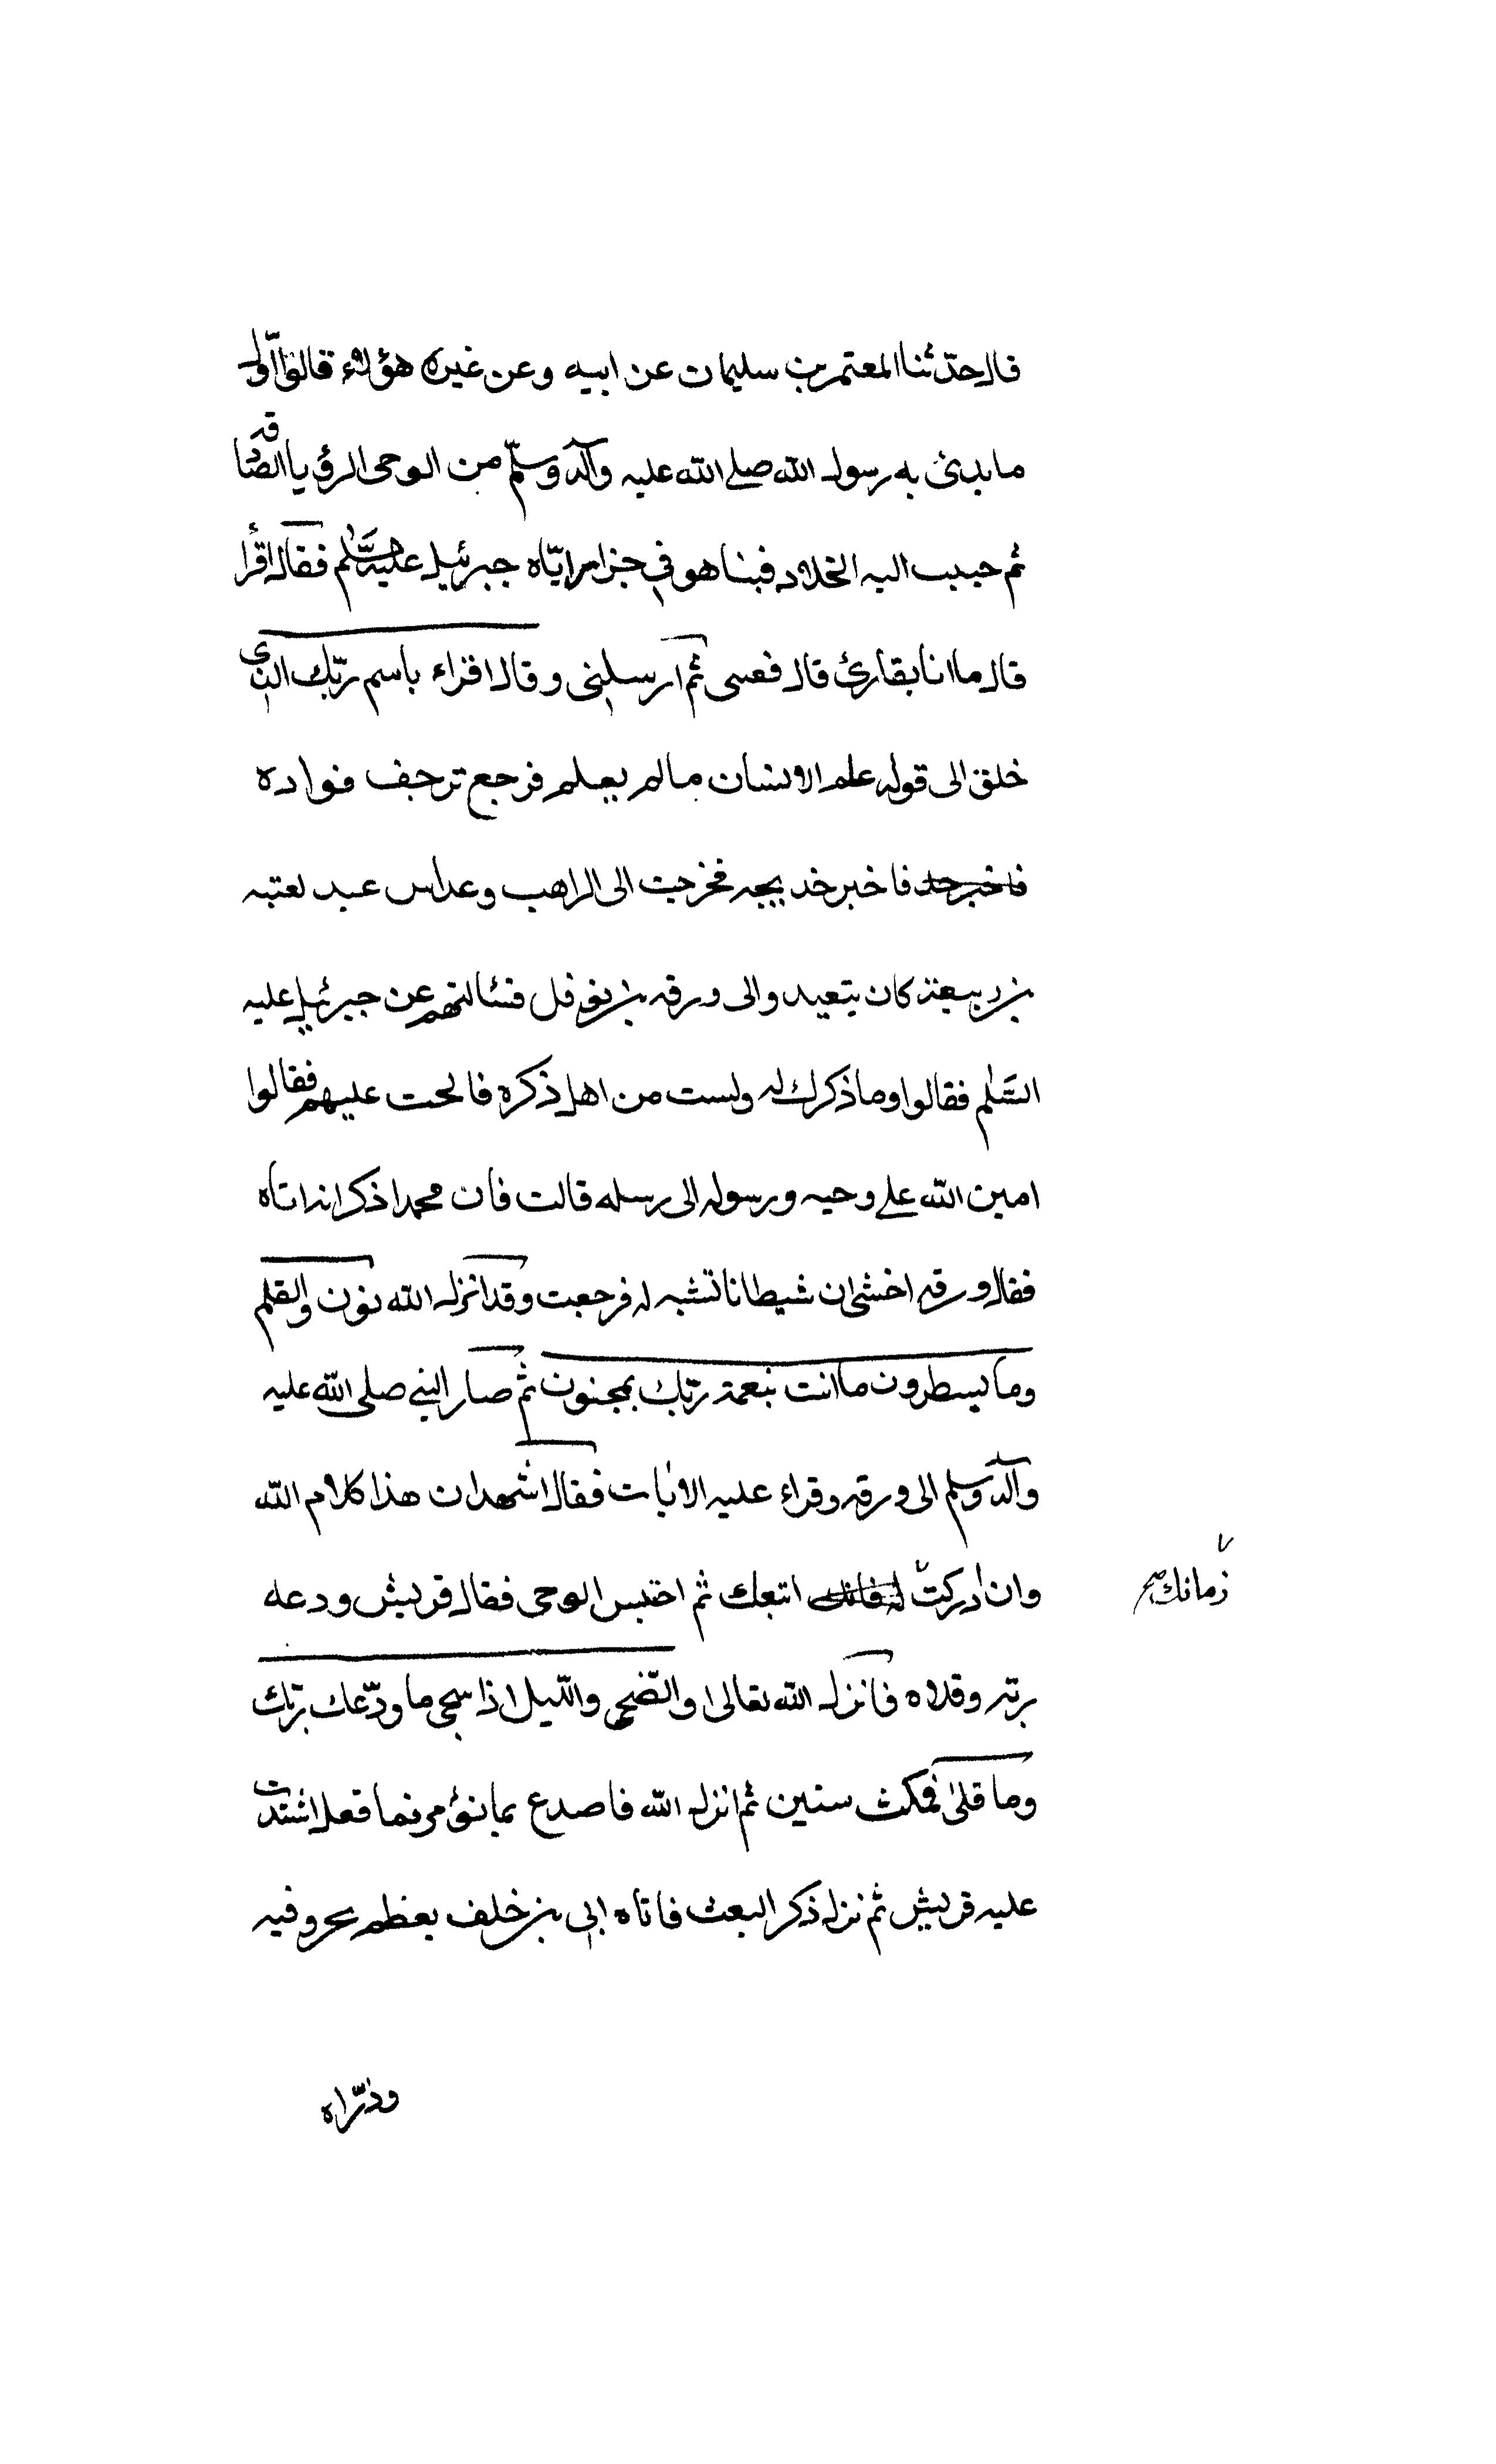 قال حدّثنا المعتمر بن سليمان عن ابيه وعن غيره هؤلاء قالوا اوّل
ما بدئ به رسول الله صلى الله عليه وآله وسلّم من الوحى الرؤيا الصّادقه
ثم حبب اليه الخلاء فبنا هو في حزا اتاه جبرئيل عليه السّلم فقال اقرأ
قال ما انا بقارئ قال فعسى ثم ارسلنى وقال اقراء باسم ربّك الذى
خلق الى قوله علم الانسان مالم يعلم فرجع ترجف فواده
فاخبر خديجه فخرجت الى الراهب وعداس عبد لعتبه
بن ربيعة كان يتعبد والى ورقه بن نوفل فسئالتهم عن جبرئيل عليه
السّلم فقالوا وما ذكرك له ولست من اهل ذكره فالحت عليهم فقالوا
امين الله على وحيه ورسوله الى رسله قالت فان محمدا ذكر انه اتاه
فقال ورقه اخشى ان شيطانا تشبه له فرجعت وقد انزل الله نون والقلم
وما يسطرون ما انت بنعمة ربّك بمجنون ثم صار النبي صلى الله عليه
وآله وسلم الى ورقه وقراء عليه الايات فقال اشهد ان هذا كلام الله
وان ادركت اتبعك ثم احتبس الوحى فقال قريش ودعه
زمانك صح
ربّه وقلاه فانزل الله تعالى والضّحى واللّيل اذا سجى ما ودّعك ربّك
وما قلى فمكث سنين ثم انزل الله فاصدع بما تؤمر فما فعل اشتدت
عليه قريش ثم نزل ذكر البعث فاتاه ابي بن خلف بعظم نحر وفيه
وذرّاه